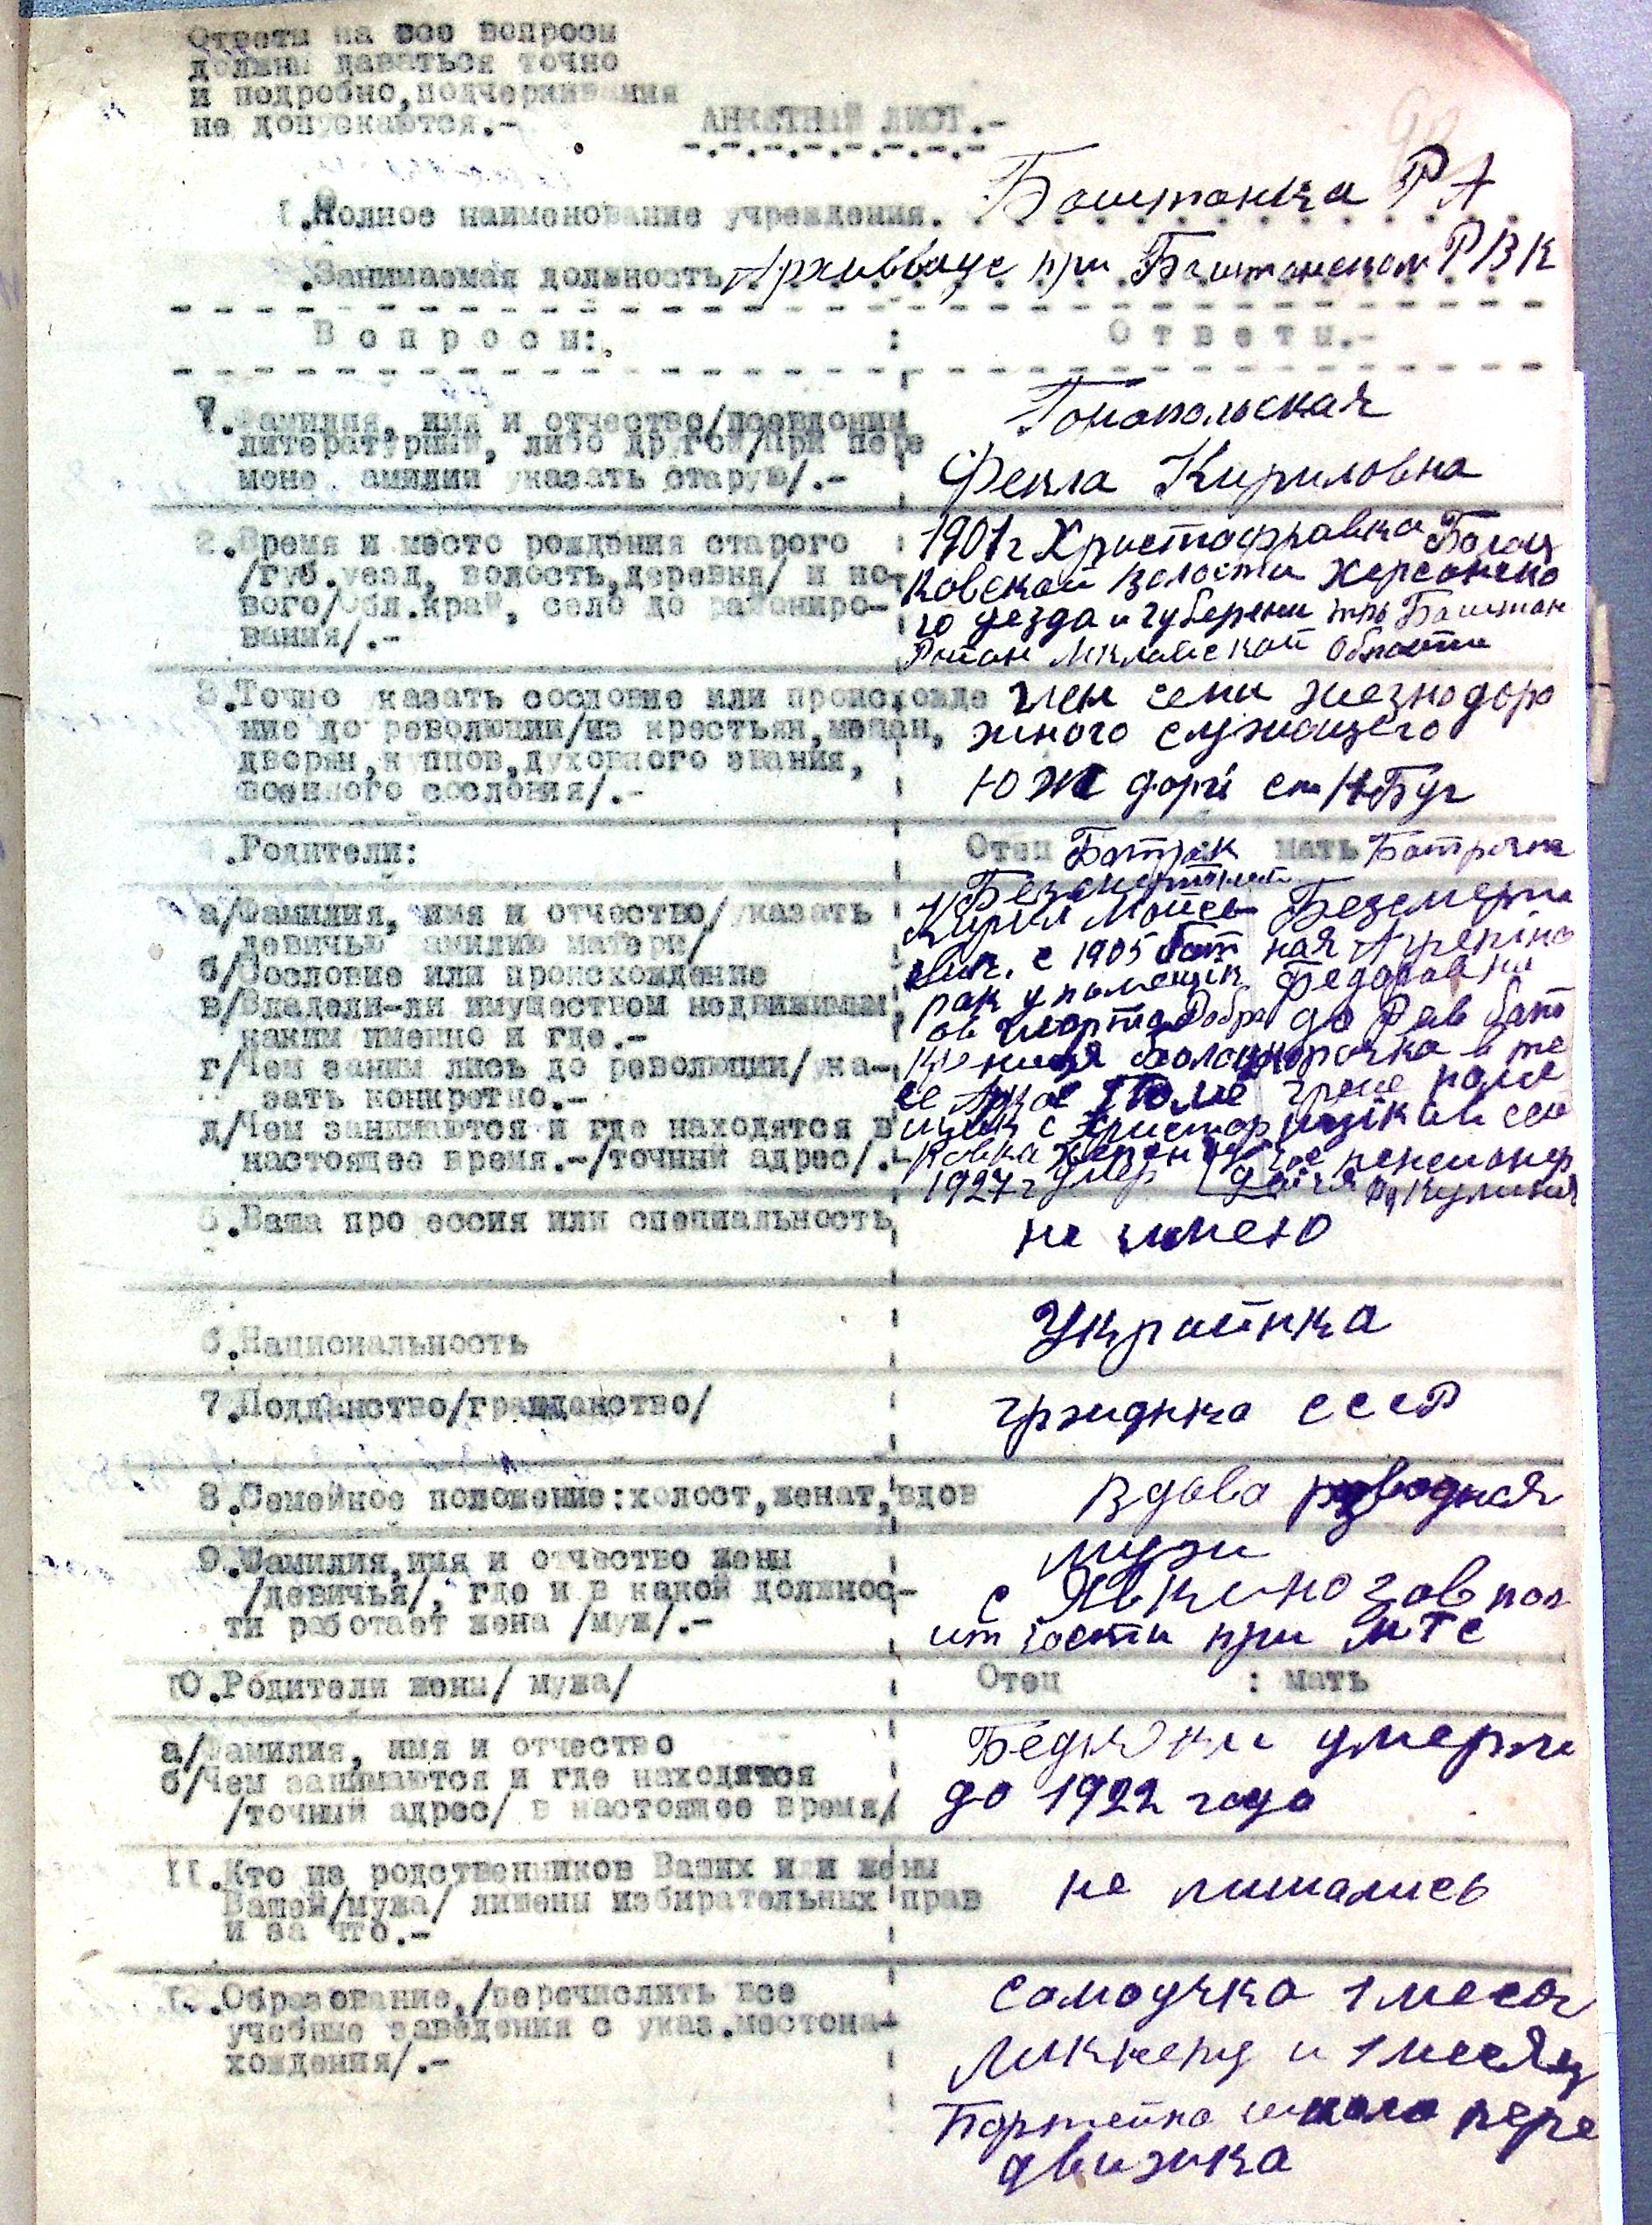 Ответы на все вопросы
должны даваться точно
и подробно, подчеркивания
не допускаются.-
АНКЕТНЫЙ ЛИСТ.-
1.Полное наименование учреждения. Баштанка РА
.Занимаемая должность Архивваус при Баштанском РВК
Вопросы: : Ответы.-
1.Фамилия, имя и отчество/псевдоним
литературный, либо другой/при пере
мене фамилии указать старую/.-
Гонопольская
Фекла Кириловна
2.Время и место рождения старого
/губ.уезд, волость,деревня/ и но-
вого/обл.край, село до райониро-
вания/.-
1901г Христофравка
ковской волости Херсонско
го уезда и губерени Баштан
Район Области
3.Точно указать сословие или происхожде
ние до революции/из крестьян,мещан,
дворян,купцов,духовного звания,
военного сословия/.-
член семи жезнодоро
жного служащего
Юж дорги ст Н Буг
4.Родители: Отец Батрак мать Батрачка
а/Фамилия, имя и отчество/указать
девичью фамилию матери/
б/Сословие или происхождение
в/Владели-ли имуществом недвижимым,
каким именно и где.-
г/Чем занимались до революции/ука-
зать конкретно.-
д/Чем занимаются и где находятся в
настоящее время.-/точный адрес/.-
Кирил Моисе
вич. с 1905 бат
рак у помещик Федоровна
1927г умер
5.Ваша профессия или специальность
не имею
6.Национальность Украйнка
7.Подданство/гражданство/ гржиднка СССР
8.Семейное положение:холост,женат,вдов вдова розводная
9.Фамилия,имя и отчество жены
/девичья/, где и в какой должнос-
ти работает жена /муж/.-
мужи
с Явкино зав пол
ит части при МТС
10.Родители жены/ мужа/ Отец : мать
а/Фамилия, имя и отчество
б/Чем занимаются и где находятся
/точный адрес/ в настоящее время/
Бедняки умерли
до 1922 года
11.Кто из родственников Ваших или жены
Вашей/мужа/ лишены избирательных прав
и за что.-
не лишались
12.Образование,/перечислить все
учебные заведения с указ.местона-
хождения/.-
самоучка 1 меся
Ликнепу и 1 месяц
Партейна школа пере
движка